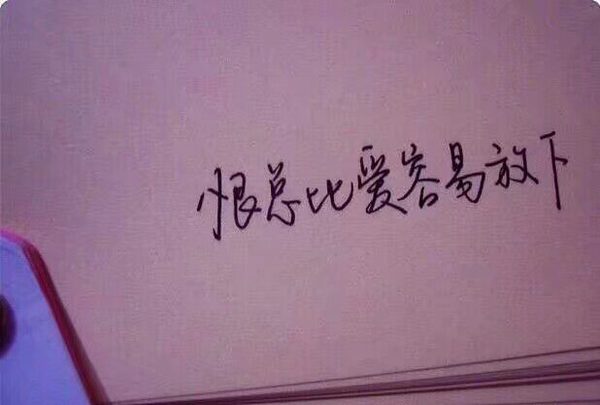 恨总比爱容易放下